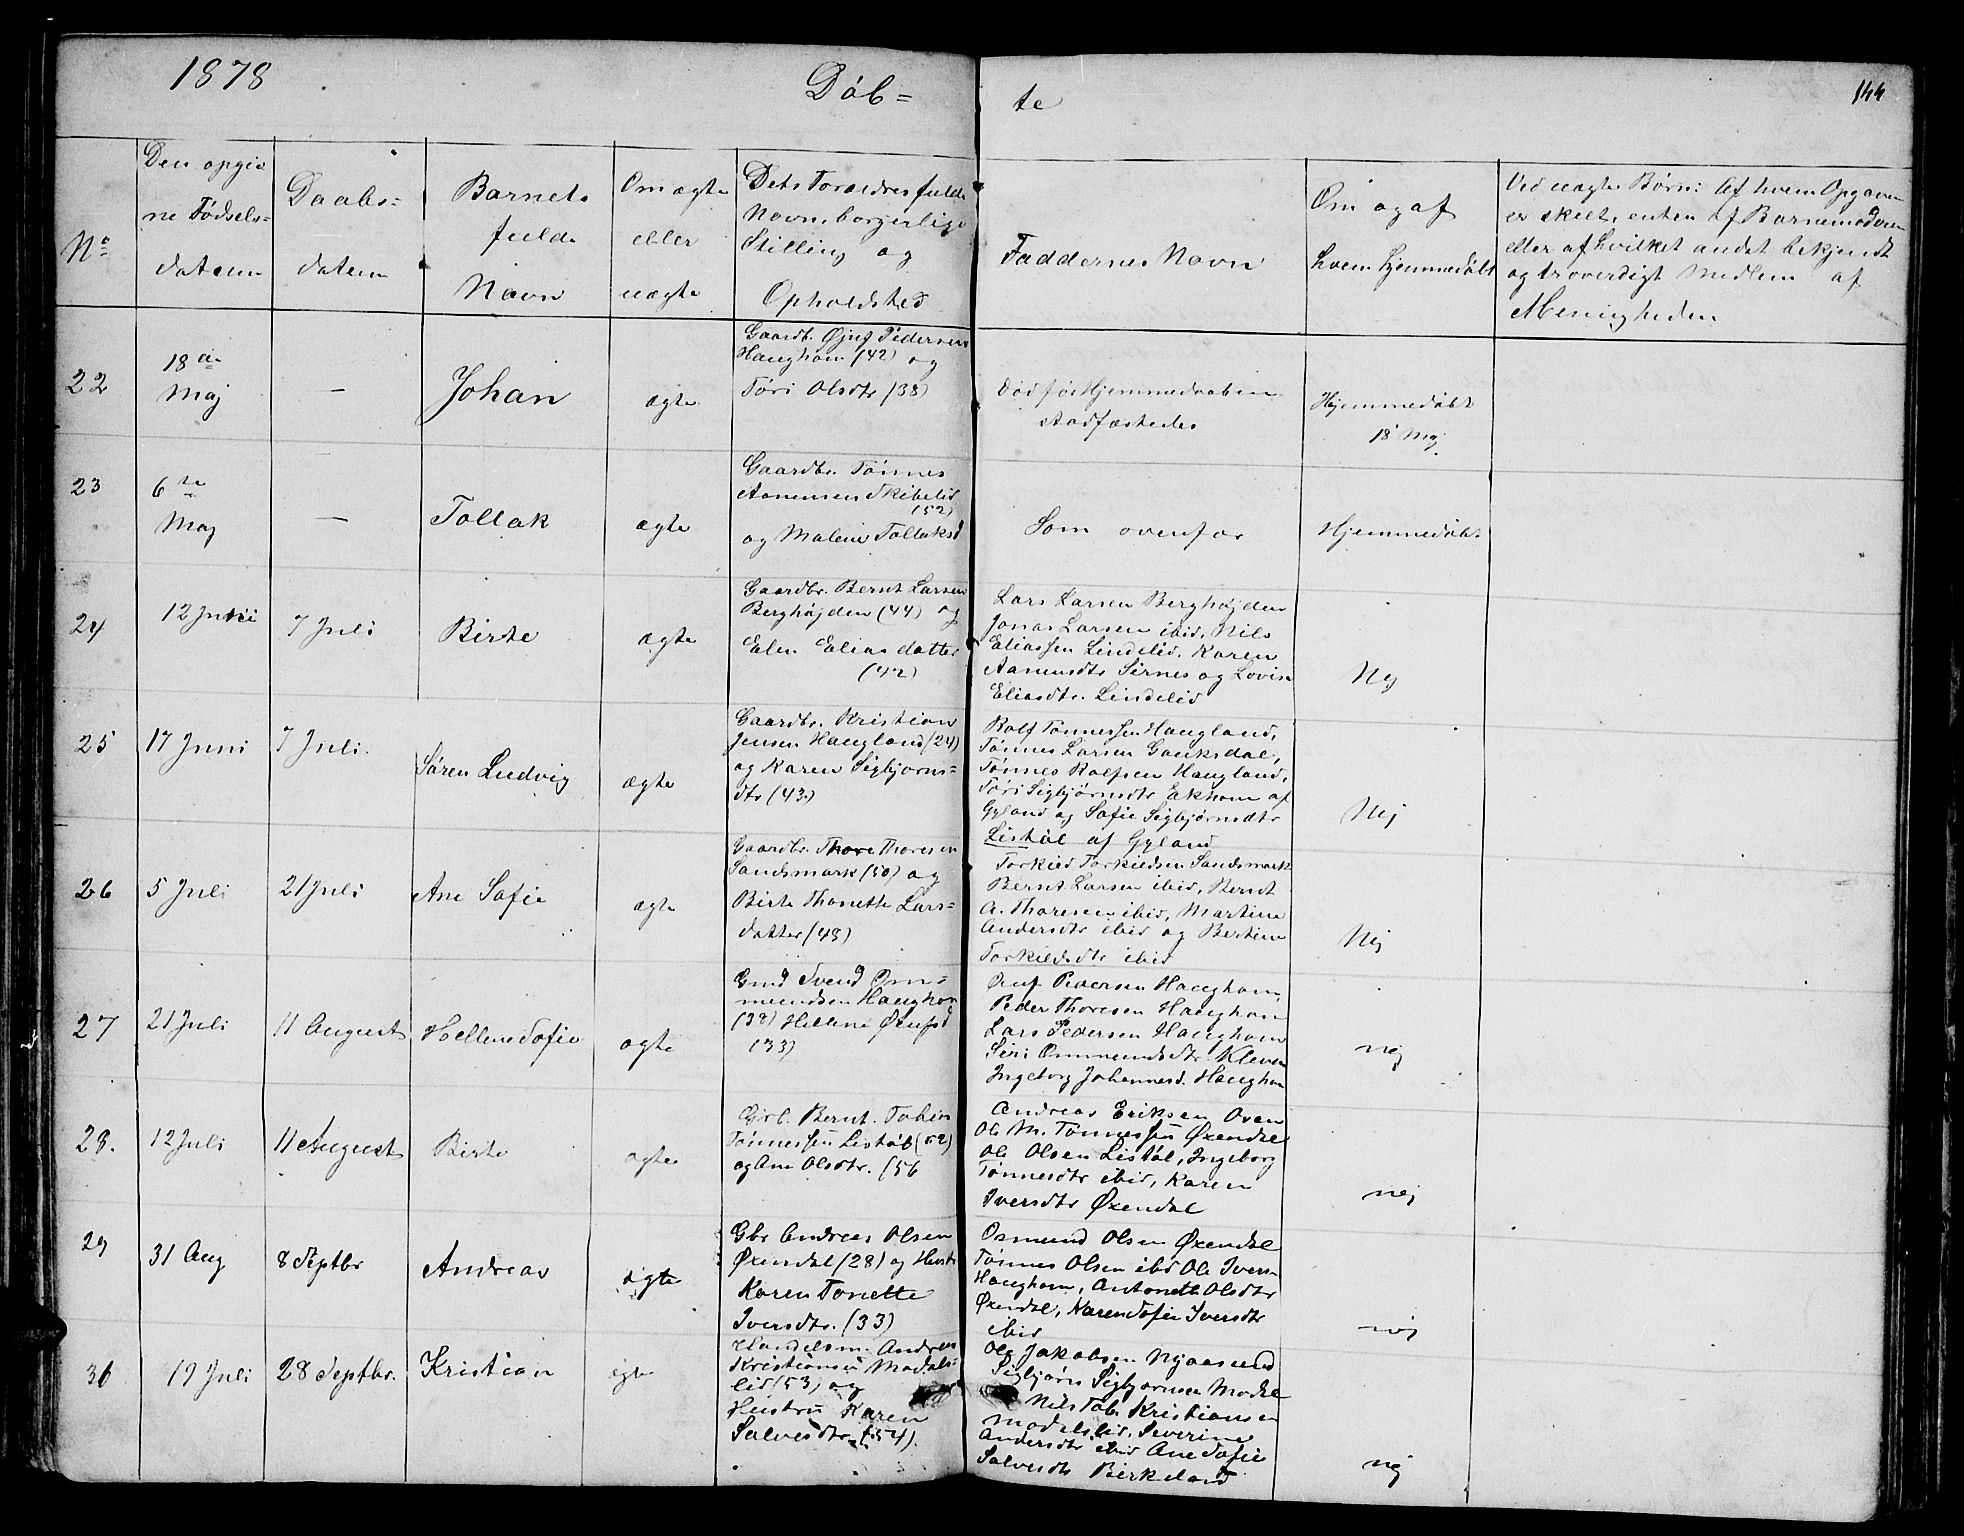 1878
Døb=
te
144
No
Den opgiv
ne Fødsels=
datum
Daabs=
datum
Barnets
fulde
Navn
Om ægte
eller
uægte
Dets Forældres fulde
Navn, borgerlige
Stilling og
Opholdsted
Faddernes Navn
Om og af
hvem hjemmedøbt
Ved uægte Børn: Af hvem Opgaven
er skeet, enten af Barnemoderen
eller af hvilket andet bekjendt
og troverdigt Medlem af
Menigheden
22
18de
Maj
—
Johan
ægte
Gaardb. Øjuf Pedersen
Haughom (42) og
Tøri Olsdtr (38)
Død før Hjemmedaaben
stadfæstedes
Hjemmedøbt
18 Maj.
23
6te
Maj
—
Tollak
ægte
Gaardbr. Tønnes
Aanensen Skibelid
(52)
og Malene Tollaksd
Som ovenfor
Hjemmedøbt
24
12 Juni
7 Juli
Birte
ægte
Gaardbr. Bernt Larsen
Berghøjden (44) og
Elen Eliasdatter
(42)
Lars Larsen Berghøjden
Jonas Larsen ibid, Nils
Eliassen Lindelid, Karen
Aanensdtr Sirnes og Lovise
Eliasdtr. Lindelid
Nej
25
17 Juni
7 Juli
Søren Ludvig
ægte
Gaardbr. Kristian
Jensen Haugland (24)
og Karen Sigbjørns=
dtr (43.)
Rolf Tønnessen Haugland,
Tønnes Larsen Gauksdal,
Tønnes Rolfsen Haugland,
Tøri Sigbjørnsdtr Ekhom af
Gyland og Sofie Sigbjørnsdtr
Listøl af Gyland
Nej
26
5 Juli
21 Juli
Ane Sofie
ægte
Gaardbr. Thore Thoresen
Sandsmark (50) og
Birte Thonette Lars=
datter (48)
Torkild Torkildsen Sandsmark
Bernt Larsen ibid, Bernt
A. Thoresen ibid, Martine
Andersdtr ibid og Bertine
Torkildsdtr ibid
Nej
27
21 Juli
11 August
Hellene Sofie
ægte
Gmd Svend Om=
mundsen Haughom
(38) Hellene Øjufsd
(33)
Øjuf Pedersen Haughom,
Peder Thoresen Haughom
Lars Pedersen Haughom
Siri Ommundsdtr. Kleven
Ingeborg Johannesd. Haughom
nej
28.
12 Juli
11 August
Birte
ægte
Grb. Bernt. Tobias
Tønnessen Listøl (52)
og Ane Olsdtr. (56
Andreas Eriksen Oven
Ole M. Tønnessen Øxendal
Ole Olsen Listøl, Ingeborg
Tønnesdtr ibid, Karen
Iversdtr Øxendal
nej
29
31 Aug
8 Septbr
Andreas
ægte
Gbr Andreas Olsen
Øxendal (28) og Hustr
Karen Tonette
Iversdtr. (33)
Osmund Olsen Øxendal
Tønnes Olsen ibid Ole Ivers
Haughom, Antonette Olsdtr
Øxendal, Karen Sofie Iversdtr
ibid
nej
30
19 Juli
28 Septbr.
Kristian
ægte
Handelsm. Andreas
Kristiansen Modals=
lid (53) og
Hustru Karen
Salvesdtr. (54).
Ole Jakobsen Njaasund
Sigbjørn Sigbjørnsen Modal
Nils Tob. Kristiansen
Modalslid, Severine
Andersdtr ibid Ane Sofie
Salvesdtr Birkeland
nej